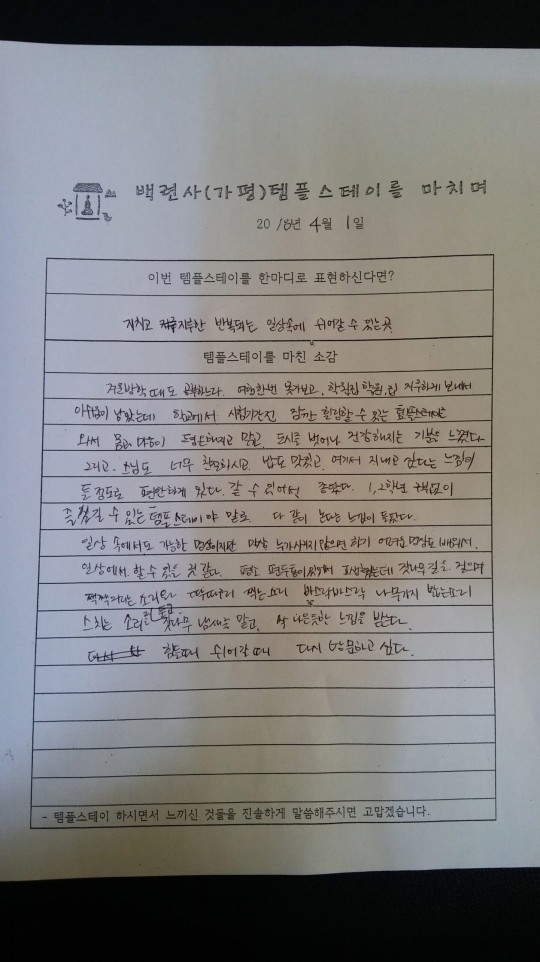 백련사(가평)템플스테이를 마치며
2018년 4월 1일
이번 템플스테이를 한마디로 표현하신다면?
지치고 지루한 반복되는 일상속에 쉬어갈 수 있는곳
템플스테이를 마친 소감
겨울방학 때도 공부하느라. 여행한번 못가보고, 학원, 집 지루하게 보내서
아쉬움이 남았는데 학교에서 시험기간전 잠깐 힐링할 수 있는 템플스테이
와서 몸과 마음이 편안해지고 맑고, 도시를 벗어나 건강해지는 기분을 느꼈다.
그리고. 스님도 너무 친절하시고, 밥도 맛있고, 여기서 지내고 싶다는 느낌이
들 정도로 편안하게 있다. 갈 수 있어서 좋았다. 1,2학년 구분없이
즐길 수 있는 템플스테이야 말로 다 같이 논다는 느낌이 들었다.
일상 속에서도 가능한 명상이지만 막상 누가 시키지 않으면 하기 어려운 명상도 배워서,
일상에서 할 수 있을 것 같다. 평소 편두통이 있어서 고생했는데 잣나무 길을 걸으며
짹짹거리는 소리와 딱따구리 쪼는소리 바스락바스락 나무가지 밟는소리
스치는 소리를 듣고 잣나무 냄새를 맡고, 싹 나은듯한 느낌을 받았다.
힘들때 쉬어갈때 다시 방문하고 싶다.
- 템플스테이 하시면서 느끼신 것들을 진솔하게 말씀해주시면 고맙겠습니다.